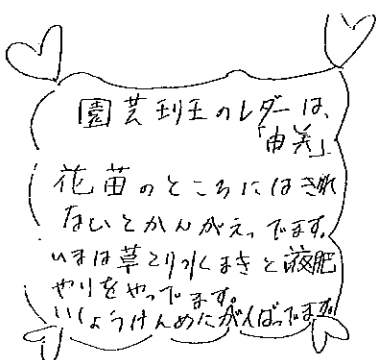 園芸班のレダーは、
「由美」
花苗のところにはきれ
ないとかんがえってます。
いまは草とり水まきと液肥
やりをやってます。
いしょうけんめにがんばってます。